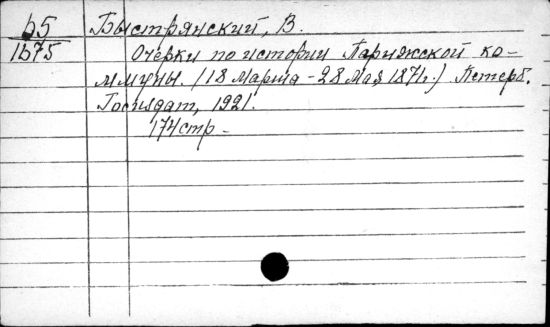 б5 Быстрянский, В.
1675 Очерки по истории Парижской ко-
ммуны. (18 Марта - 28 Мая 1871г.) Петерб.
Госиздат, 1921.
174 стр -